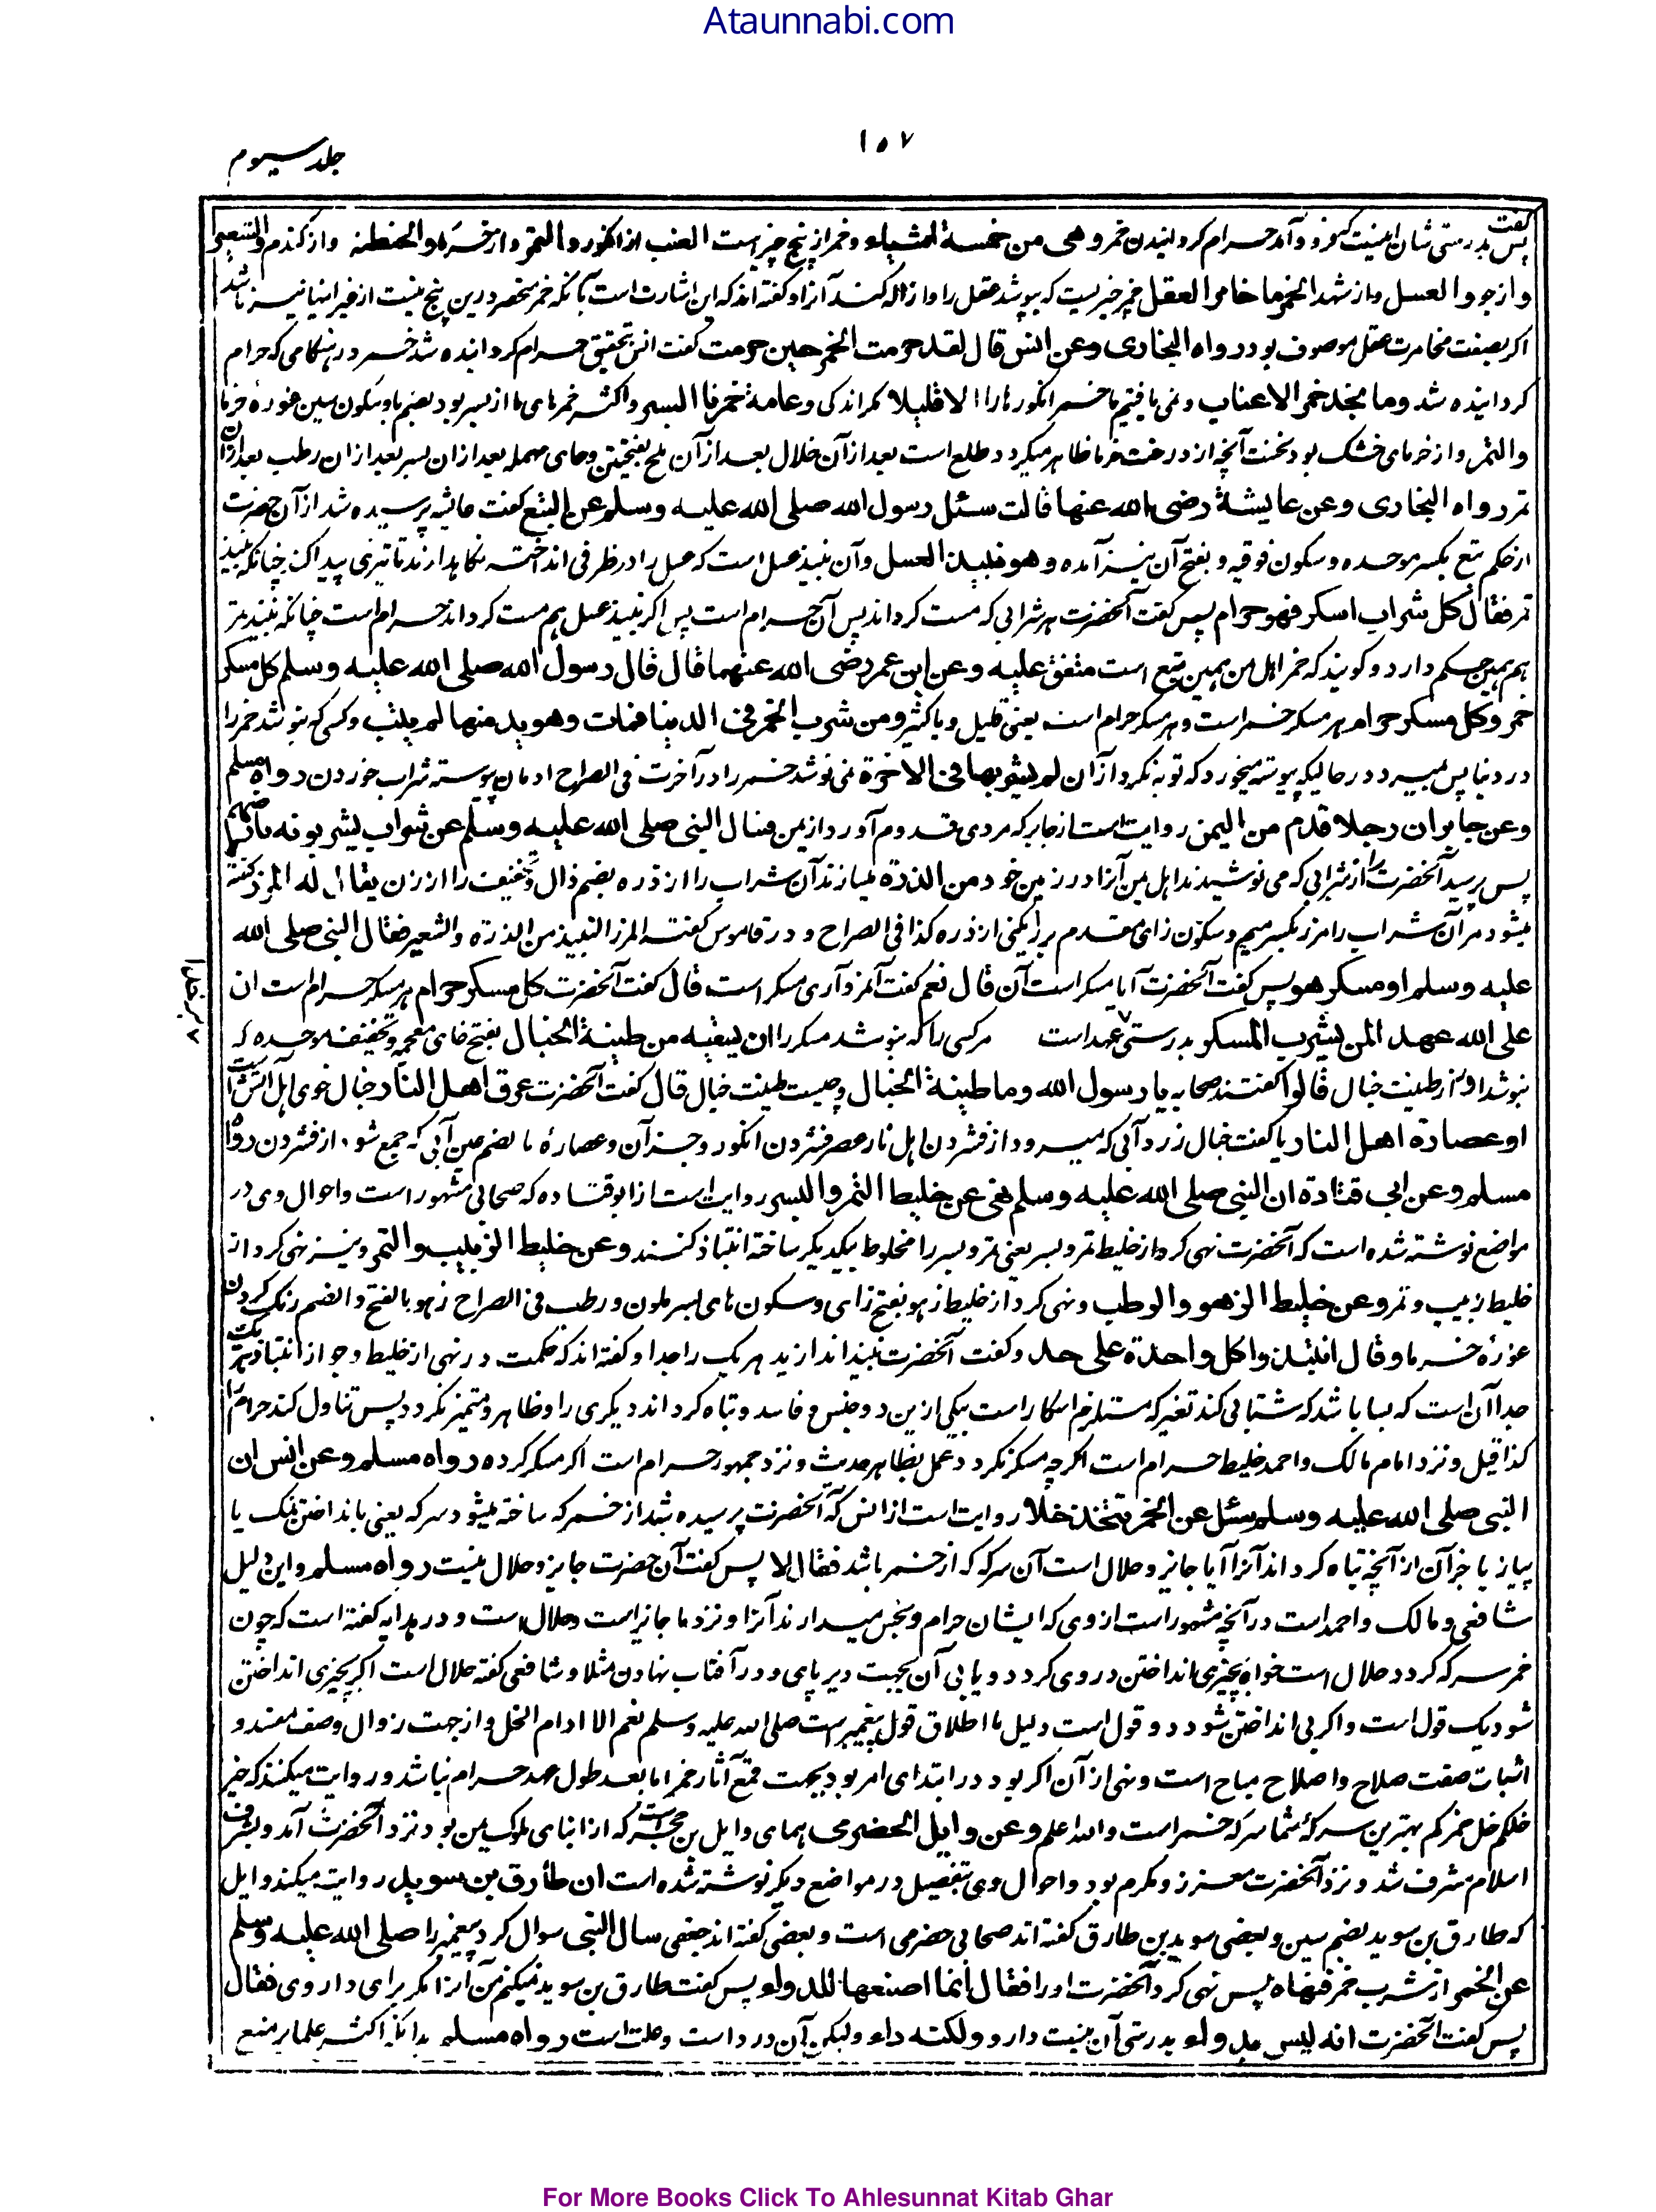 Ataunnabi.com
۱۵۷
جلد سیوم
پس گفت بدرستی شان اینست که فرود آمد حرام گردانیدن خمر وهی من خمسة اشیاء وخمر از پنج چیز است العنب از انگور والتمر واز خرما والحنطة واز گندم والشعیر
واز جو والعسل واز شهد الخمر ما خامر العقل خمر چیزیست که بپوشد عقل را و ازاله کند آنرا و گفته اند که این اشارت است بآنکه خمر منحصر درین پنج نیست از غیر اینها نیز باشد
اگر بصفت مخامرت عقل موصوف بود رواه البخاری وعن انس قال لقد حرمت الخمر حین حرمت گفت انس بتحقیق حرام گردانیده شد خمر در هنگامی که حرام
گردانیده شد وما نجد خمر الاعناب و نمی یافتیم ما خمر انگورها را الا قلیلا مگر اندکی وعامة خمرنا البسر واکثر خمرهای ما از بسر بود بضم با و سکون سین غوره خرما
والتمر واز خرمای خشک بود نخست آنچه از درخت خرما ظاهر میگردد طلع است بعد ازآن خلال بعد ازآن بلح بفتحتین وحای مهمله بعد ازان بسر بعد ازان رطب بعد ازان
تمر رواه البخاری وعن عایشة رضی الله عنها قالت سئل رسول الله صلی الله علیه وسلم عن البتع گفت عایشه پرسیده شد ازآن حضرت
از حکم بتع بکسر موحده وسکون فوقیه و بفتح آن نیز آمده وهو نبیذ العسل وآن نبیذ عسل است که عسل را در ظرفی انداخته نگاهدارند تا تیزی پیدا کند چنانکه نبیذ
تمر فقال کل شراب اسکر فهو حرام پس گفت آنحضرت هر شرابی که مست گرداند پس آن حرام است پس اگر نبیذ عسل هم مست گرداند حرام است چنانکه نبیذ تمر
هم همین حکم دارد و گویند که خمر اهل یمن همین بتع است متفق علیه وعن ابن عمر رضی الله عنهما قال قال رسول الله صلی الله علیه وسلم کل مسکر
خمر وکل مسکر حرام هر مسکر خمر است و هر مسکر حرام است یعنی قلیل و یا کثیر ومن شرب الخمر فی الدنیا فمات وهو یدمنها لم یتب وکسی که بنوشد خمر را
در دنیا پس بمیرد در حالیکه پیوسته میخورد که توبه نکرد ازآن لم یشربها فی الاخرة نمی نوشد خمر را در آخرت فی الصراح ادمان پیوسته شراب خوردن رواه مسلم
وعن جابر ان رجلا قدم من الیمن روایت است از جابر که مردی قدوم آورد از یمن فسال النبی صلی الله علیه وسلم عن شراب یشربونه بارضهم
پس پرسید آنحضرت را از شرابی که می نوشیدند اهل یمن آنرا در زمین خود من الذرة میسازند آن شراب را از ذره بضم ذال وتخفیف را ارزن یقال له المزر گفته
میشود مر آن شراب را مزر بکسر میم وسکون زای مقدم بر را یمنی از ذره کذا فی الصراح و در قاموس گفته المزر النبیذ من الذرة والشعیر فقال النبی صلی الله
علیه وسلم او مسکر هو پس گفت آنحضرت آیا مسکر است آن قال نعم گفت آنمرد آری مسکر است قال گفت آنحضرت کل مسکر حرام هر مسکر حرام است ان
علی الله عهد المن یشرب المسکر بدرستی عهد است مرکسی را که بنوشد مسکر را ان یسقیه من طینة الخبال بفتح خای معجمه و تخفیف موحده که
بنوشد اورا از طینت خبال قالوا گفتند صحابه یا رسول الله وما طینة الخبال وچیست طینت خبال قال گفت آنحضرت عرق اهل النار خبال خوی اهل آتش است
او عصارة اهل النار یا گفت خبال زردآبی که میرود از فشردن اهل نار عصر فشردن انگور و جز آن و عصاره ما بضم عین آبی که جمع شود از فشردن رواه
مسلم وعن ابی قتادة ان النبی صلی الله علیه وسلم نهی عن خلیط التمر والبسر روایت است از ابوقتاده که صحابی مشهور است واحوال وی در
مواضع نوشته شده است که آنحضرت نهی کرد از خلیط تمر وبسر یعنی تمر وبسر را مخلوط بیکدیگر ساخته انتباذ کنند وعن خلیط الزبیب والتمر ونیز نهی کرد از
خلیط زبیب و تمر وعن خلیط الزهو والرطب ونهی کرد از خلیط زهو بفتح زای وسکون های بسر ملون ورطب فی الصراح زهو بالفتح والضم رنگ کردن
غوره خرما وقال انتبذوا کل واحدة علی حدة وگفت آنحضرت نبیذ اندازید هر یک را جدا و گفته اند که حکمت در نهی از خلیط وجواز انتباذ هر یک
جدا آن است که بسا باشد که شتابی کند تغیر که مستلزم اسکار است بیکی ازین دو جنس و فاسد و تباه گرداند دیگری را و ظاهر و متمیز نگردد پس تناول کند حرام را
کذا قیل ونزد امام مالک واحمد خلیط حرام است اگرچه مسکر نگردد عمل بظاهر حدیث و نزد جمهور حرام است اگر مسکر گردد رواه مسلم وعن انس ان
النبی صلی الله علیه وسلم سئل عن الخمر یتخذ خلا روایت است از انس که آنحضرت پرسیده شد از خمر که ساخته میشود سرکه یعنی بانداختن نمک یا
پیاز یا جز آن از آنچه تباه گرداند آنرا آیا جایز و حلال است آن سرکه که از خمر باشد فقال لا پس گفت آن حضرت جایز و حلال نیست رواه مسلم و این دلیل
شافعی و مالک واحمد است در آنچه مشهور است از وی که ایشان حرام ونجس میدارند آنرا و نزد ما جایز است و حلال است و در هدایه گفته است که چون
خمر سرکه گردد حلال است خواه بچیزی انداختن در وی گردد و یا بی آن بجهت دیر پای و در آفتاب نهادن مثلا و شافعی گفته حلال است اگر بچیزی انداختن
شود یک قول است و اگر بی انداختن شود دو قول است دلیل ما اطلاق قول پیغمبر است صلی الله علیه وسلم نعم الا ادام الخل و از جهت زوال وصف مفسد و
اثبات صفت صلاح واصلاح مباح است و نهی ازآن اگر بود در ابتدای امر بود بجهت قمع آثار خمر اما بعد طول عهد حرام نباشد و روایت میکنند که خیر
خلکم خل خمرکم بهترین سرکه شما سرکه خمر است والله اعلم وعن وایل الحضرمی همای وایل بن حجر است که از ابنای ملوک یمن بود نزد آنحضرت آمد وبشرف
اسلام مشرف شد و نزد آنحضرت معزز و مکرم بود و احوال وی بتفصیل در مواضع دیگر نوشته شده است ان طارق بن سوید روایت میکند وایل
که طارق بن سوید بضم سین وبعضی سوید بن طارق گفته اند صحابی حضرمی است و بعضی گفته اند جعفی سال النبی سوال کرد پیغمبر را صلی الله علیه وسلم
عن الخمر از شرب خمر فنهاه پس نهی کرد آنحضرت اورا فقال انما اصنعها للدواء پس گفت طارق بن سوید نمیکنم من آنرا مگر برای داروی فقال
پس گفت آنحضرت انه لیس بدواء بدرستی آن نیست دارو ولکنه داء ولیکن آن درد است وعلت است رواه مسلم بدانکه اکثر علما بر منع
For More Books Click To Ahlesunnat Kitab Ghar